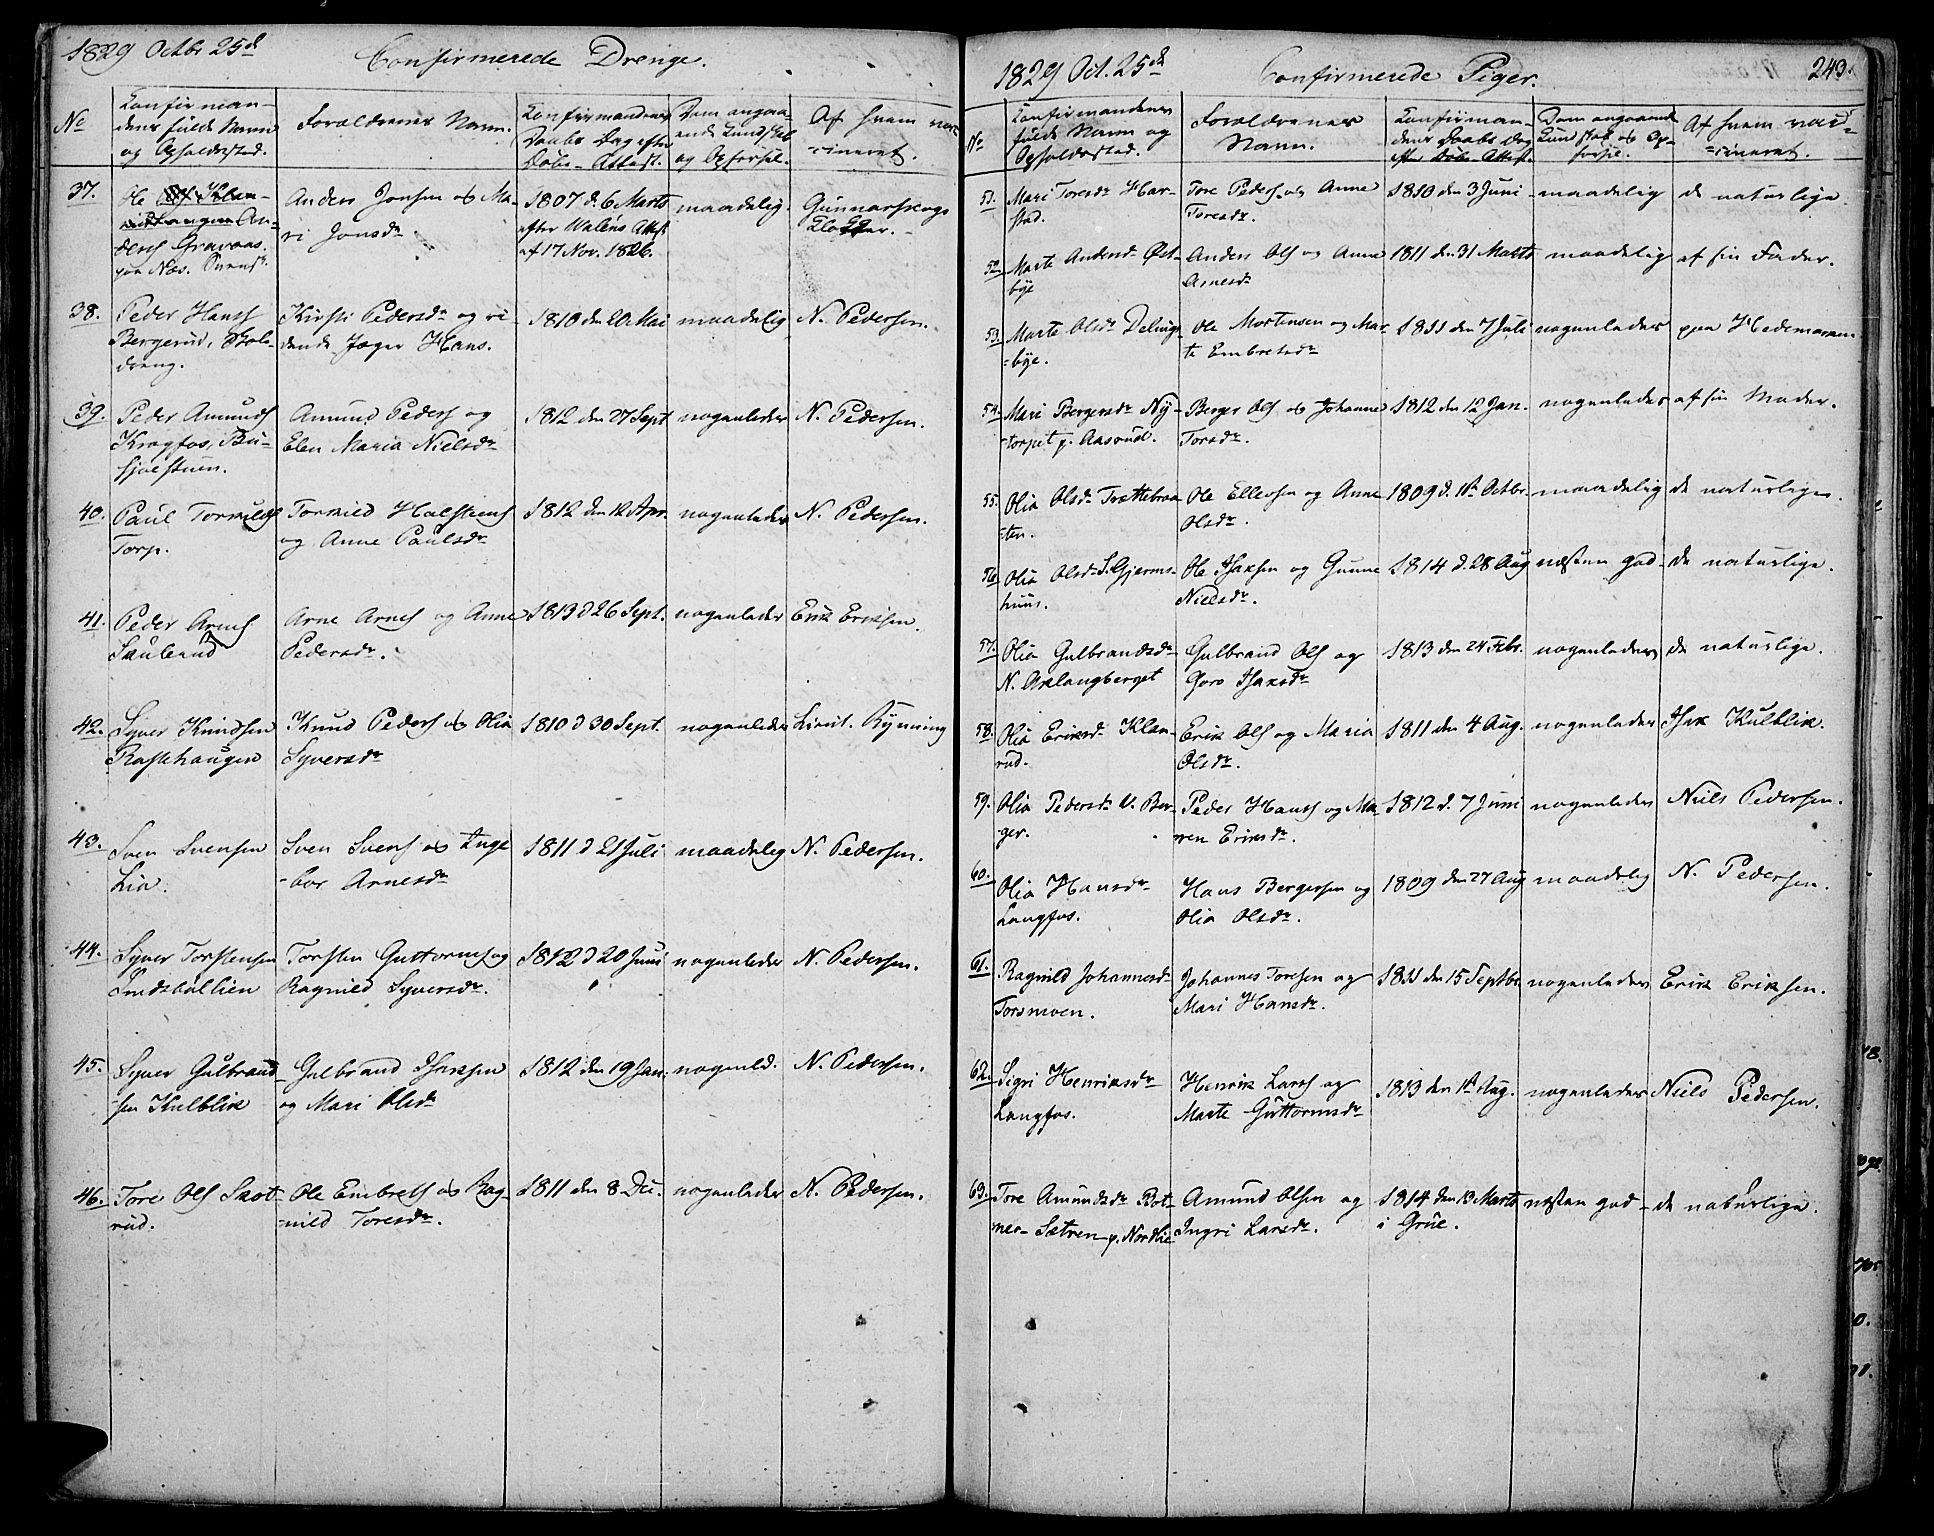 1829 Octbr 25de
Confirmerede Drenge.
No
Confirman-
dens fulde Navn
og Opholdssted.
Forældrenes Navn.
Confirmandens
Daabs Dag efter
Døbe-Attest.
Dom angaa-
ende Kundskab
og Opførsel.
Af hvem vac-
-cineret.
37.
Ole
An-
ders Gravaas
paa Næs.
Anders Jonsen og Ma-
ri Jonsdr
1807 d. 6 Marts
efter Attest
af 17 Nov. 1826.
maadelig.
Gunnarskogs
38.
Peder Hanss
Bergerud, Skole-
dreng.
Kirsti Pedersdr og ri-
dende Jæger Hans.
1810 den 20 Mai
maadelig
N. Pedersen.
39.
Peder Amunds
Kragfos,
Amund Peders og
Elen Maria Nielsdr
1812 den 27 Sept
nogenledes
N. Pedersen.
40.
Paul Tormilds
Torp.
Tormild Halsteens
og Anne Paulsdr
1812 den 12 Apr.
nogenledes
N. Pedersen.
41.
Peder Arnes
Skulerud
Arne Arnes og Anne
Pedersdr.
1813 d 26 Sept.
nogenledes
Erik Eriksen.
42.
Syver Knudsen
Rastehaugen
Knud Peders og Olia
Syversdr
1810 d 30 Sept.
nogenledes
Lieut. Rynning
43.
Sven Svensen
Lia.
Sven Svens og Inge
-bor Arnesdr
1811 d 21 Juli
maadelig
N. Pedersen.
44.
Syver Torstensen
Torsten Guttorms og
Ragnild Syversdr.
1812 d 20 Juni
nogenledes
N. Pedersen.
45.
Syver Gulbrand-
sen Kulblik
Gulbrand Isaksen
og Mari Olsdr
1812 den 19 Jan.
nogenled.
N. Pedersen.
46.
Tore Ols Skot-
rud.
Ole Embrets og Rag-
nild Toresdr.
1811 den 8 Dec.
nogenledes
N. Pedersen.
1829 Oct. 25de
Confirmerede Piger.
243.
No
Confirmandens
fulde Navn og
Opholdssted.
Forældrenes
Navn.
Confirman-
dens Daabs Dag
efter Døbe-Attest.
Dom angaaende
Kundskab og Op-
førsel.
Af hvem vac-
-cineret.
51.
Mari Toresdr Har-
stad.
Tore Peders og Anne
Toresdr.
1810 den 3 Juni
maadelig
de naturlige.
52
Marte Andersdr Øst-
bye
Anders Ols og Anne
Arnesdr
1811 den 31 Marts
maadelig
af sin Fader.
53.
Marte Olsdr Deling-
-bye.
Ole Mortensen og Mar-
te Embretsdr
1811 den 7 Juli
nogenledes
paa Hedemarken
54.
Mari Bergersdr Ny-
-torpet p. Aasrud.
Berger Ols og Johanne
Torsdr.
1812 den 12 Jan.
nogenledes
af sin Moder.
55.
Olia Olsdr Trættebraa-
-ten.
Ole Ellevsen og Anne
Olsdr.
1809 d. 1te Octbr.
maadelig
de naturlige.
56
Olia Olsdr S. Gjerms-
huus.
Ole Isaksen og Gunne
Nielsdr.
1814 d. 28 Aug
næsten god
de naturlige.
57.
Olia Gulbrandsdr
N. Arlangberget
Gulbrand Ols og
Goro Isaksdr
1813 den 24 Febr.
nogenledes
de naturlige.
58.
Olia Eriksdr Klan-
rud.
Erik Ols og Maria
Olsdr.
1811 den 4 Aug.
nogenledes
Isak Kulblik.
59.
Olia Pedersdr V. Ber-
ger.
Peder Hanss og Ma-
ren Eriksdr.
1812 d. 7 Juni
nogenledes
Niels Pedersen.
60.
Olia Hansdr
Langfos.
Hans Bergersen og
Olia Olsdr.
1809 den 27 Aug
maadelig
N. Pedersen.
61.
Ragnild Johannesdr
Torsmoen.
Johannes Toresen og
Mari Hansdr.
1811 den 15 Septbr.
nogenledes
Erik Eriksen.
62.
Sigri Henriksdr
Langfos.
Henrik Larss og
Marte Guttormsdr
1813 den 1te Aug.
nogenledes
Niels Pedersen.
63.
Tore Amundsdr Bot-
ner-Sætren p. Nordlie
Amund Olsen og
Ingri Larsdr.
1814 den 13 Marts
i Grue.
næsten god
de naturlige.